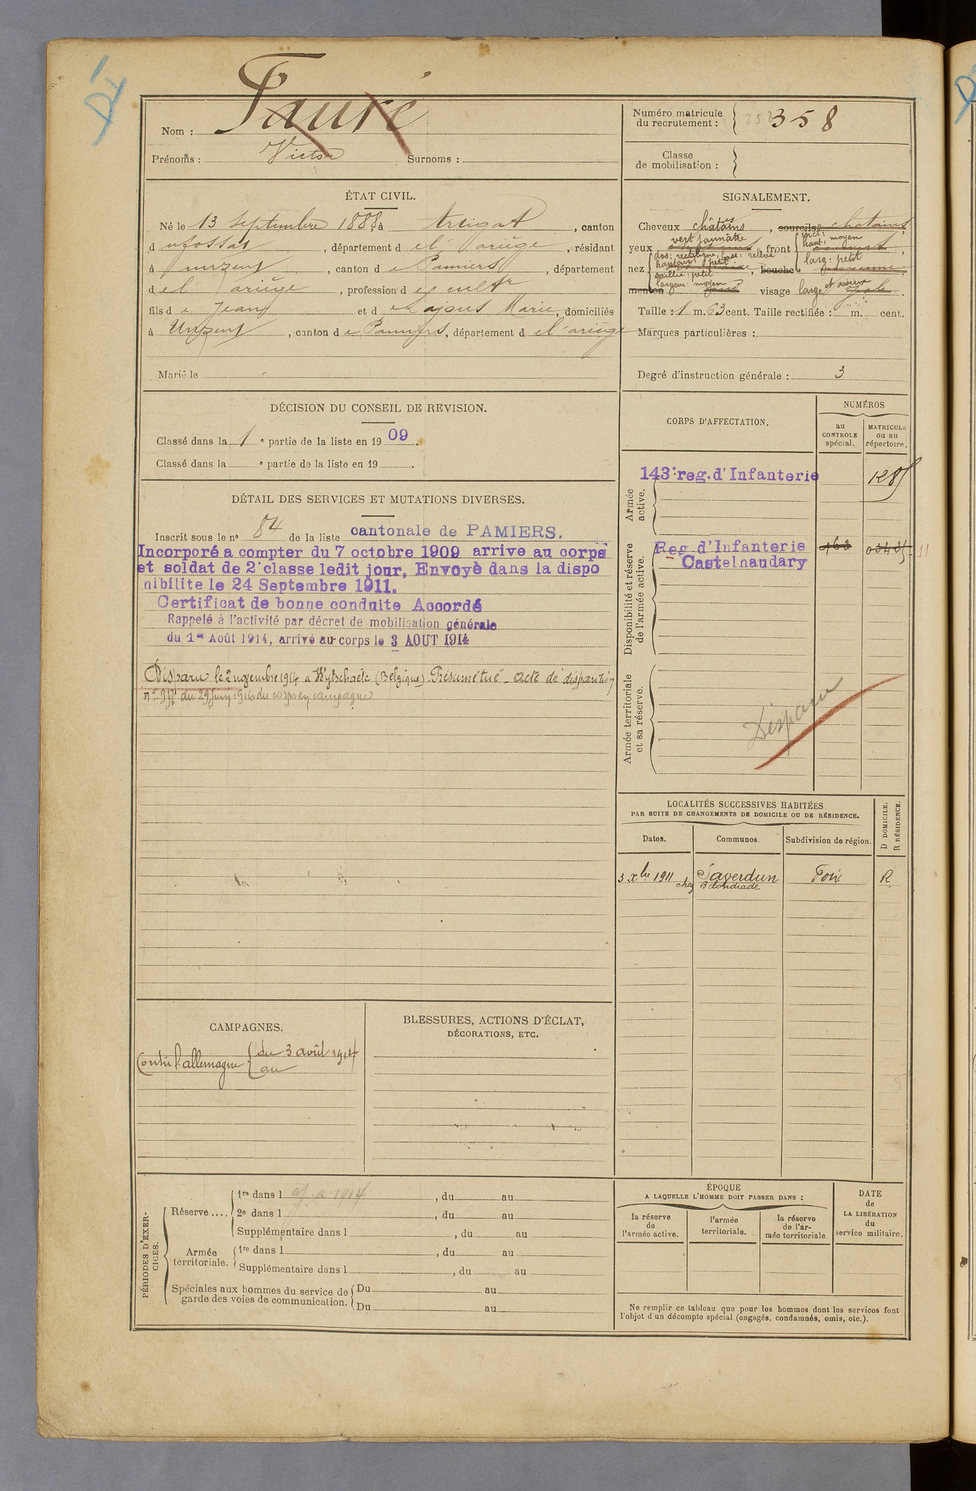 Fauré
Nom :
Prénoms : Victor Surnoms :
Numéro matricule
du recrutement : 358
Classe
de mobilisation :
ÉTAT CIVIL.
Né le 13 Septembre 1888, à Artigat, canton
d u fossat, département d e l'ariège, résidant
à unzent, canton d e Pamiers, département
d e l'ariège, profession d e cultr
fils d e Jean et d e Marie, domiciliés
à Unzent, canton d e Pamiers, département d e l'ariège
Marié le
SIGNALEMENT.
Cheveux châtains, sourcils chatains
yeux vert jaunâtre, front incl: moyen
haut: moyen
larg: petit
nez dos: rectiligne, base: relevé
hauteur: petit, bouche
saillie: petit
largeur: moyen
menton visage large et osseux
Taille : 1 m. 63 cent. Taille rectifiée : m. cent.
Marques particulières :
Degré d'instruction générale : 3
DÉCISION DU CONSEIL DE REVISION.
Classé dans la 1 e partie de la liste en 1909.
Classé dans la e partie de la liste en 19
DÉTAIL DES SERVICES ET MUTATIONS DIVERSES.
Inscrit sous le n° 84 de la liste cantonale de PAMIERS.
Incorporé a compter du 7 octobre 1909 arrive au corps
et soldat de 2e classe ledit jour, Envoyé dans la dispo
nibilite le 24 Septembre 1911.
Certificat de bonne conduite Accordé
Rappelé à l'activité par décret de mobilisation générale
du 1er Août 1914, arrivé au corps le 3 AOUT 1914
Disparu le 2 novembre 1914 à Wytschaete (Belgique). Présumé tué - acte de disparition
du 29 juin 1916 du corps en campagne
CORPS D'AFFECTATION.
NUMÉROS
au
CONTROLE
spécial.
MATRICULE
ou au
répertoire.
Armée
active.
143e reg. d'Infanterie
Disponibilité et réserve
de l'armée active.
Reg d'Infanterie
- Castelnaudary
Armée territoriale
et sa réserve.
Disparu
LOCALITÉS SUCCESSIVES HABITÉES
PAR SUITE DE CHANGEMENTS DE DOMICILE OU DE RÉSIDENCE.
Dates.
Communes.
Subdivision de région.
D DOMICILE.
R RÉSIDENCE.
3 Xbre 1911 Saverdun Foix R
chez
CAMPAGNES.
Contre l'allemagne du 3 août 1914
au
BLESSURES, ACTIONS D'ÉCLAT,
DÉCORATIONS, ETC.
PÉRIODES D'EXER-
CICES.
Réserve ....
1re dans l , du au
2e dans l , du au
Supplémentaire dans l , du au
Armée
territoriale.
1re dans l , du au
Supplémentaire dans l , du au
Spéciales aux hommes du service de
garde des voies de communication.
Du au
Du au
ÉPOQUE
A LAQUELLE L'HOMME DOIT PASSER DANS :
la réserve
de
l'armée active.
l'armée
territoriale.
la réserve
de l'ar-
mée territoriale.
DATE
de
LA LIBÉRATION
du
service militaire.
Ne remplir ce tableau que pour les hommes dont les services font
l'objet d'un décompte spécial (engagés, condamnés, omis, etc.).